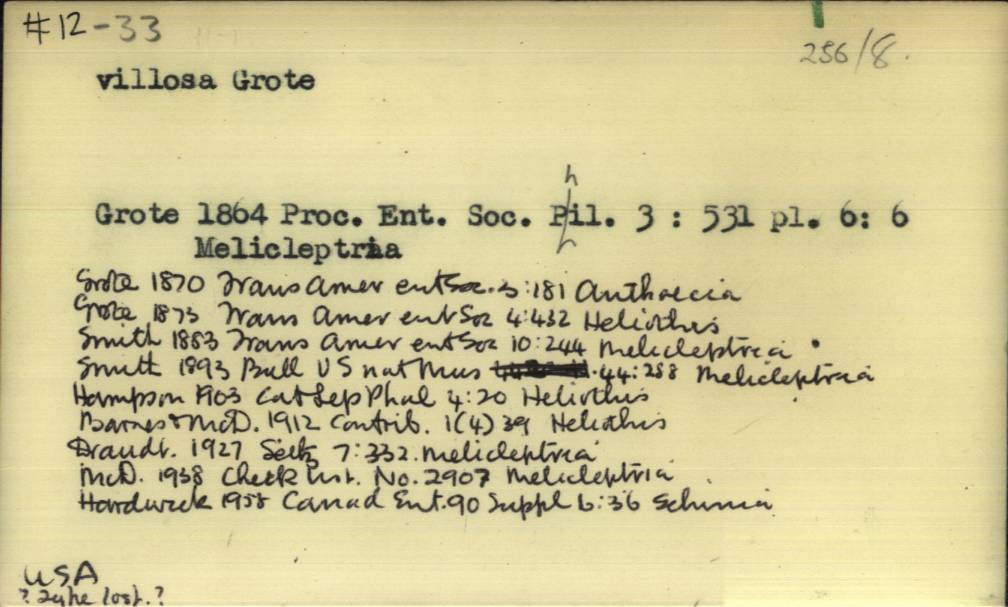 #12-33
256/8.
villosa Grote
h
Grote 1864 Proc. Ent. Soc. Pil. 3 : 531 pl. 6: 6
Melicleptria
Grote 1870 Trans Amer ent Soc. 3:181 Anthoecia
Grote 1873 Trans Amer ent Soc 4:432 Heliothis
Smith 1883 Trans Amer ent Soc 10:244 Melicleptria
Smith 1893 Bull US nat Mus 44:288 Melicleptria
Hampson 1903 Cat Lep Phal 4:20 Heliothis
Barnes & McD. 1912 Contrib. 1(4) 39 Heliothis
Draudt. 1927 Seitz 7:332. Melicleptria
McD. 1938 Check list. No. 2907 Melicleptria
Hardwick 1958 Canad Ent. 90 Suppl 6:36 Schinia
USA
? Type lost.?